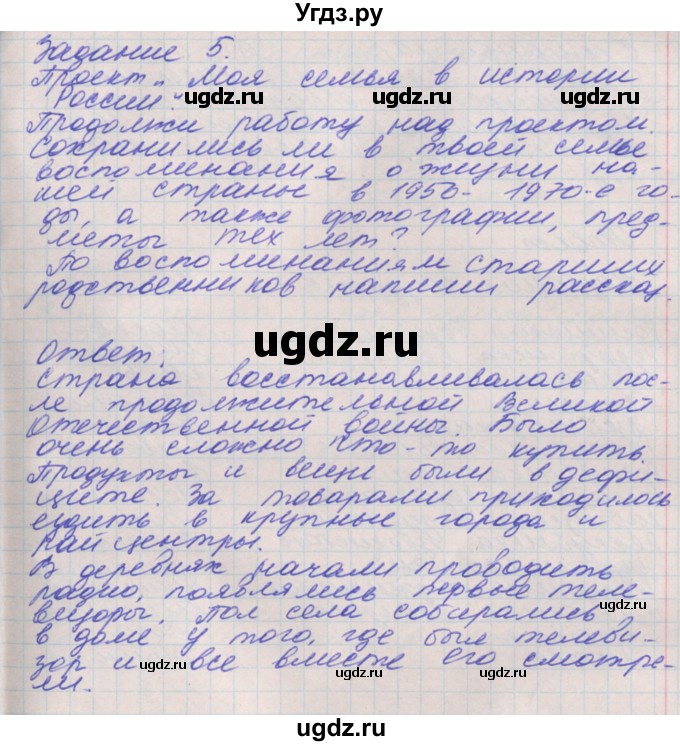 Угдз.ру
Задание 5.
Проект „Моя семья в истории
России".
ugdz.ru ugdz.ru
Продолжи работу над проектом.
Сохранились ли в твоей семье
воспоминания о жизни на-
шей страны в 1950-1970-е го-
ды, а также фотографии, пред-
ugdz.ru ugdz.ru
меты тех лет?
По воспоминаниям старших
родственников напиши рассказ.
ugdz.ru
Ответ.
страна восстанавливалась пос-
ле продолжительной Великой
Отечественной войны. Было
очень сложно что-то купить.
Продукты и вещи были в дефи-
ugdz.ru ugdz.ru
ците. За товарами приходилось
ездить в крупные города и
райцентры.
В деревнях начали проводить
радио, появлялись первые теле-
ugdz.ru
визоры. Пол села собирались
в доме у того, где был телеви-
зор и все вместе его смотре-
ugdz.ru ugdz.ru
ли.
ugdz.ru